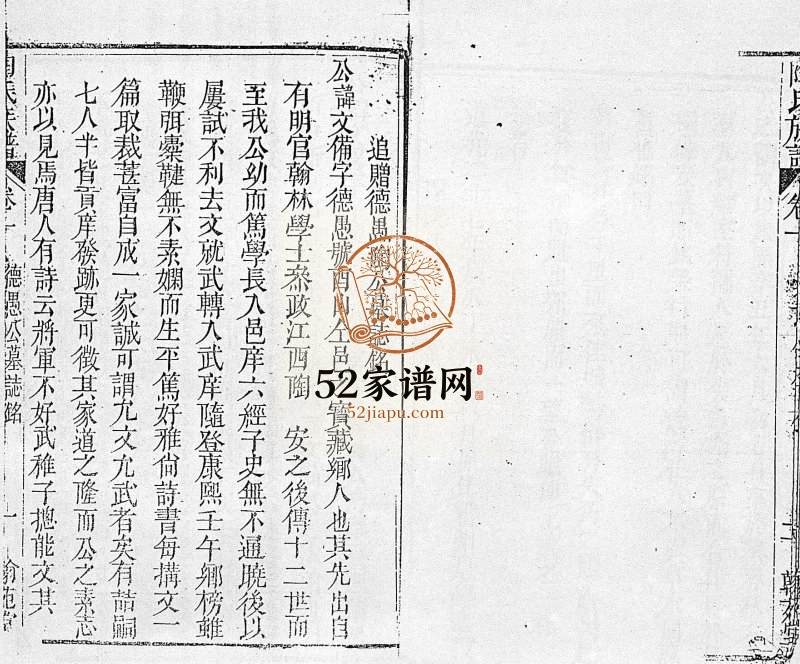 氏族譜 卷一
追贈德愚陶公墓誌銘
公諱文備字德愚號酉山仝邑之寶藏鄉人也其先出自
有明官翰林學士叅政江西陶 安之後傳十二世而
至我公幼而篤學長入邑庠六經子史無不通曉後以
屢試不利去文就武轉入武庠隨登康熙壬午鄉榜雖
鞭弭櫜鞬無不素嫻而生平篤好雅尙詩書每搆文一
篇取裁菩富自成一家誠可謂允文允武者矣有喆嗣
七人半皆貢庠發跡更可徵其家道之隆而公之素志
亦以見焉唐人有詩云將軍不好武稚子摠能文其
氏族譜 卷十 德愚公墓誌銘 一
52家谱网
52jiapu.com